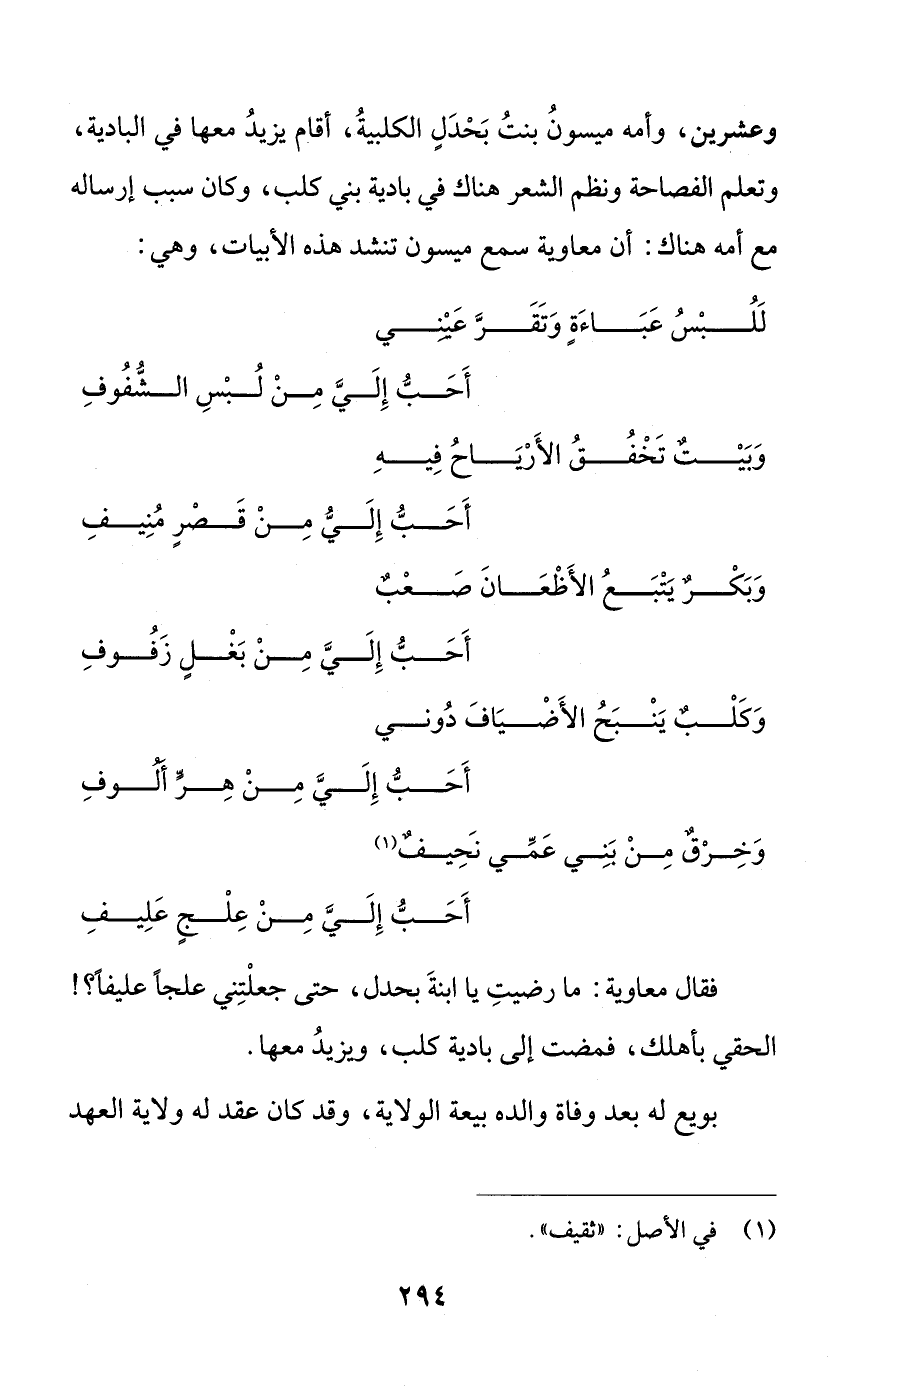 وعشرين، وأمه ميسونُ بنتُ بَحْدَلٍ الكلبيةُ، أقام يزيدُ معها في البادية،
وتعلم الفصاحة ونظم الشعر هناك في بادية بني كلب، وكان سبب إرساله
مع أمه هناك: أن معاوية سمع ميسون تنشد هذه الأبيات، وهي:
لَلُبْسُ عَبَاءَةٍ وَتَقَرَّ عَيْنِي
أَحَبُّ إِلَيَّ مِنْ لُبْسِ الشُّفُوفِ
وَبَيْتٌ تَخْفُقُ الأَرْيَاحُ فِيهِ
أَحَبُّ إِلَيُّ مِنْ قَصْرٍ مُنِيفِ
وَبَكْرٌ يَتْبَعُ الأَظْعَانَ صَعْبٌ
أَحَبُّ إِلَيَّ مِنْ بَغْلٍ زَفُوفِ
وَكَلْبٌ يَنْبَحُ الأَضْيَافَ دُونِي
أَحَبُّ إِلَيَّ مِنْ هِرٍّ أَلُوفِ
وَخِرْقٌ مِنْ بَنِي عَمِّي نَحِيفٌ(١)
أَحَبُّ إِلَيَّ مِنْ عِلْجٍ عَلِيفِ
فقال معاوية: ما رضيتِ يا ابنةَ بحدل، حتى جعلْتِني علجاً عليفاً؟!
الحقي بأهلك، فمضت إلى بادية كلب، ويزيدُ معها.
بويع له بعد وفاة والده بيعة الولاية، وقد كان عقد له ولاية العهد
(١) في الأصل: «ثقيف».
٢٩٤